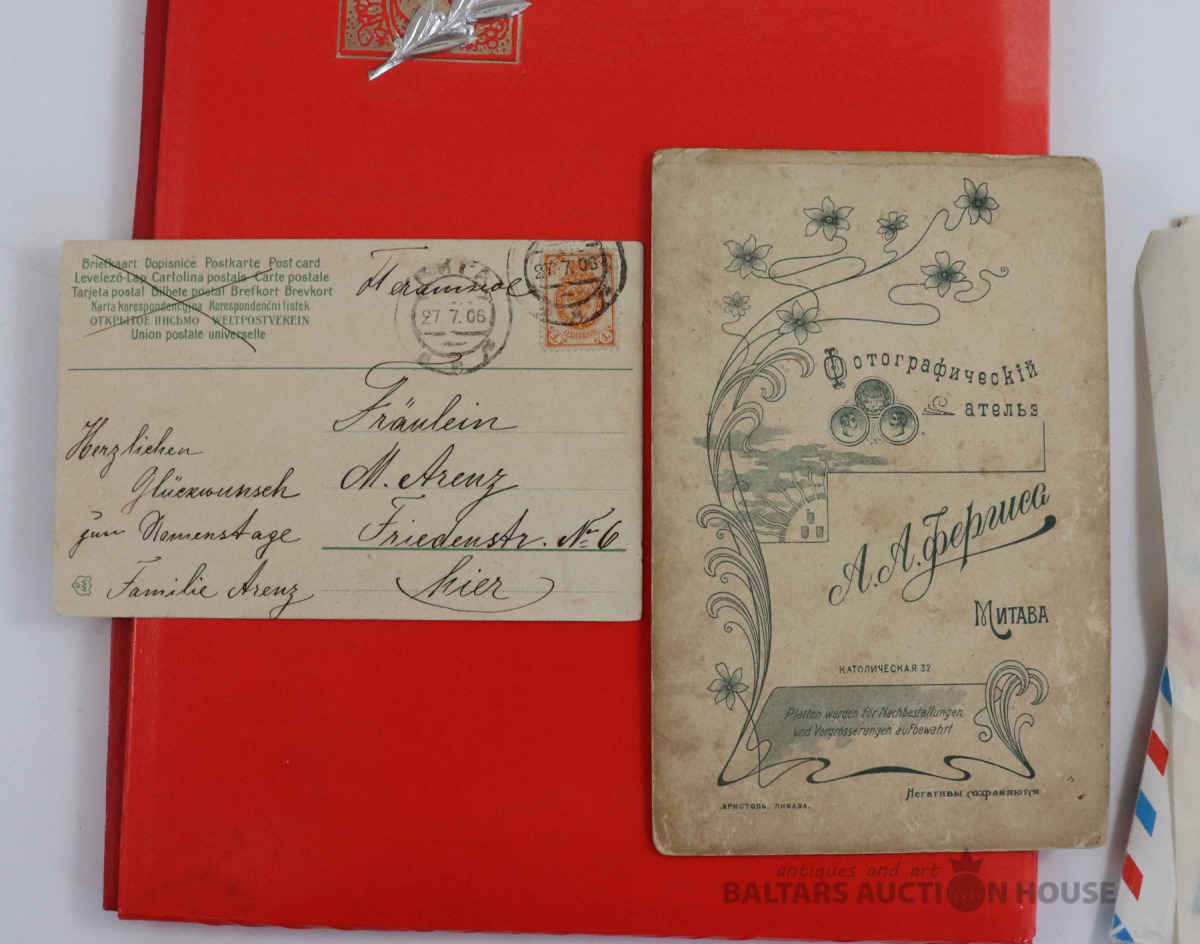 Briefkaart Dopisnice Postkarte Post card
Levelező-Lap Cartolina postale Carte postale
Tarjeta postal Bilhete postal Brefkort Brevkort
Karta korespondencyjna Korespondenční listek
ОТКРЫТОЕ ПИСЬМО WELTPOSTVEREIN
Union postale universelle
РИГА
27 7. 06
27 7. 06
1
1
Fräulein
M. Arenz
Friedenstr. № 6
hier
Herzlichen
Glückwunsch
zum Namenstage
Familie Arenz
Фотографическій
ателье
А. А. Фергиса
МИТАВА
КАТОЛИЧЕСКАЯ 32
Platten werden für Nachbestellungen
und Vergrösserungen aufbewahrt.
Негативы сохраняются
„БРИСТОЛЬ, ЛИБАВА.
antiques and art
BALTARS AUCTION HOUSE